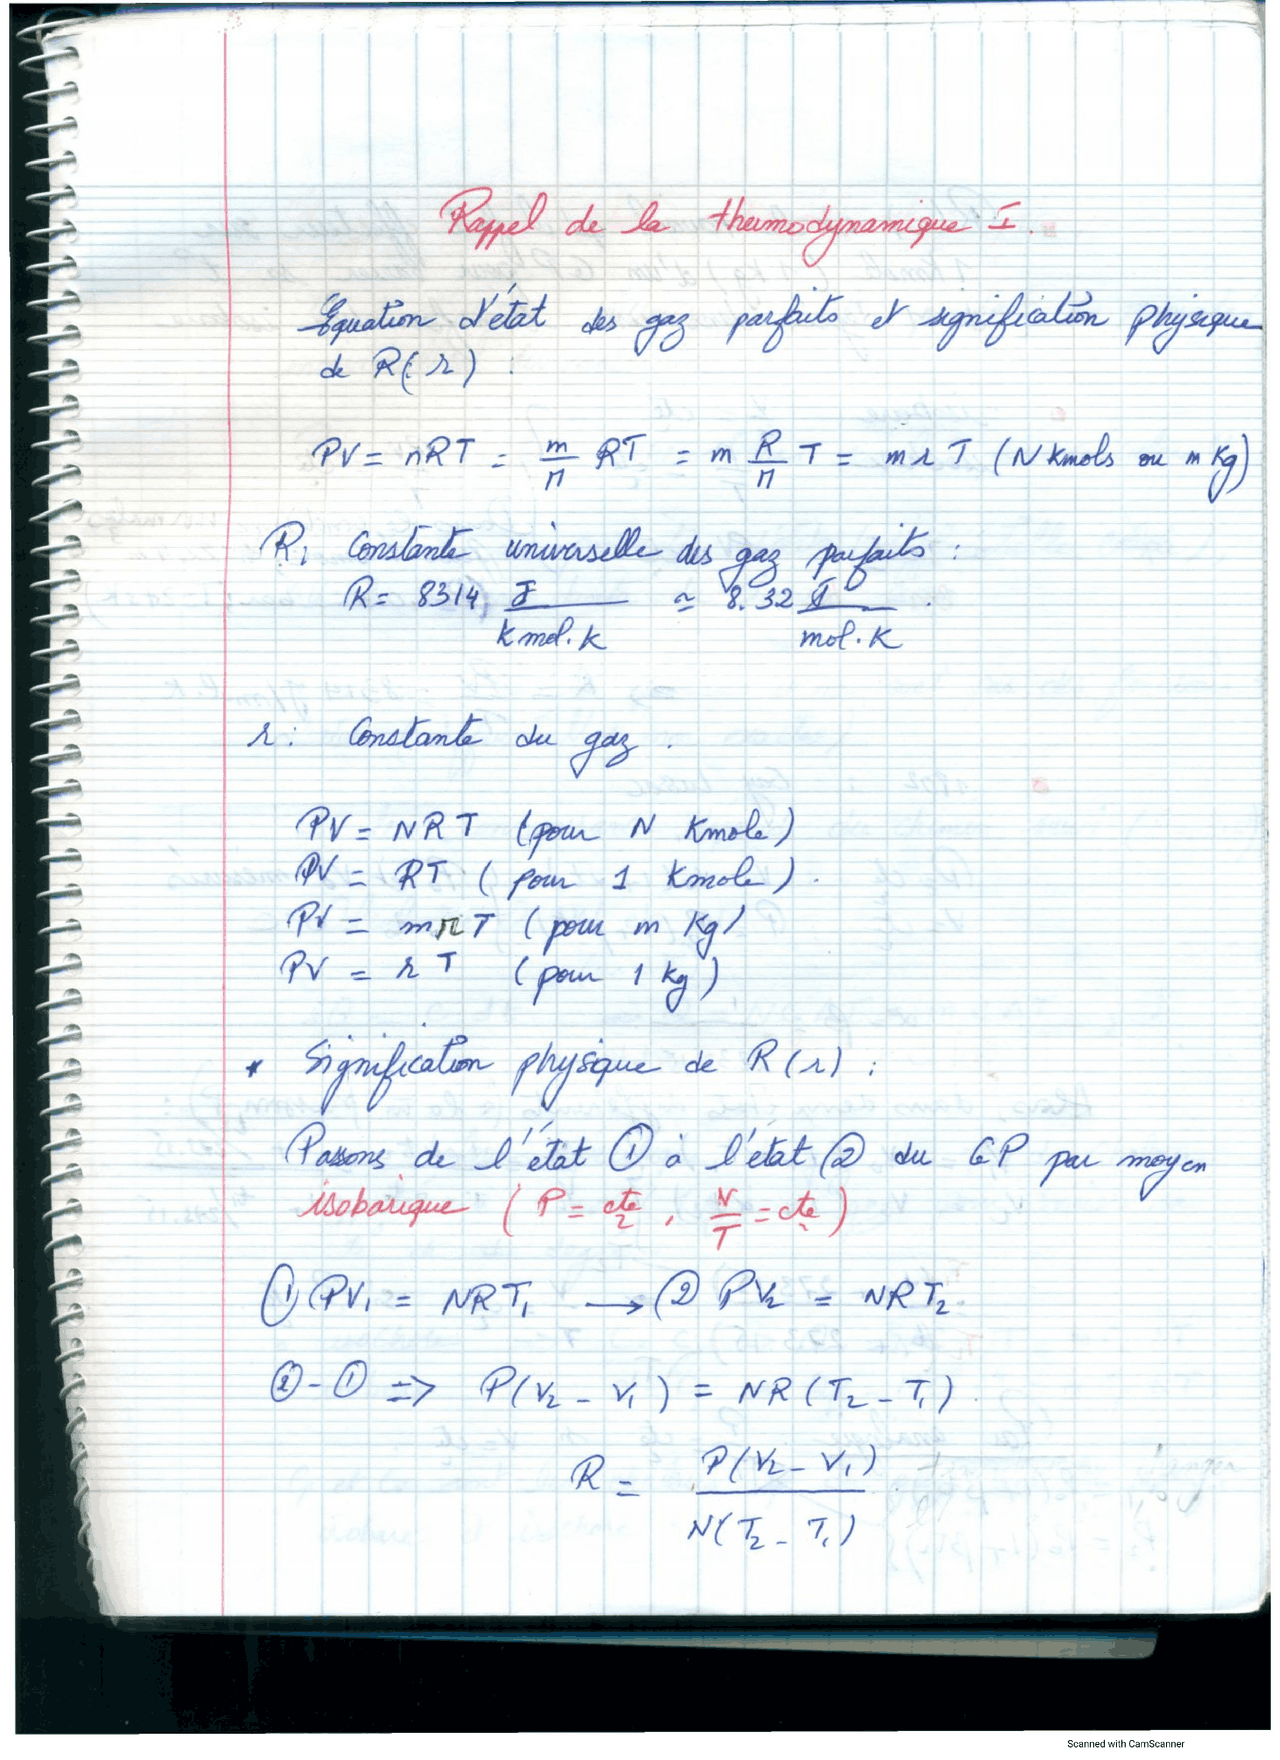 Rappel de la thermodynamique I.
Equation d'état des gaz parfaits et signification physique
de R(r) :
PV = nRT = m/M RT = m R/M T = m r T (N Kmols ou m Kg)
R: Constante universelle des gaz parfaits :
R = 8314 J/kmol.K ≃ 8.32 J/mol.K
r : Constante du gaz .
PV = NRT (pour N Kmole)
PV = RT (pour 1 Kmole) .
PV = mrT (pour m Kg)
PV = rT (pour 1 kg)
* Signification physique de R(r) :
Passons de l'état ① à l'état ② du GP par moyen
isobarique ( P = cte , V/T = cte )
① PV₁ = NRT₁ → ② PV₂ = NRT₂
② - ① => P(V₂ - V₁) = NR(T₂ - T₁) .
R = P(V₂ - V₁) / N(T₂ - T₁)
Scanned with CamScanner